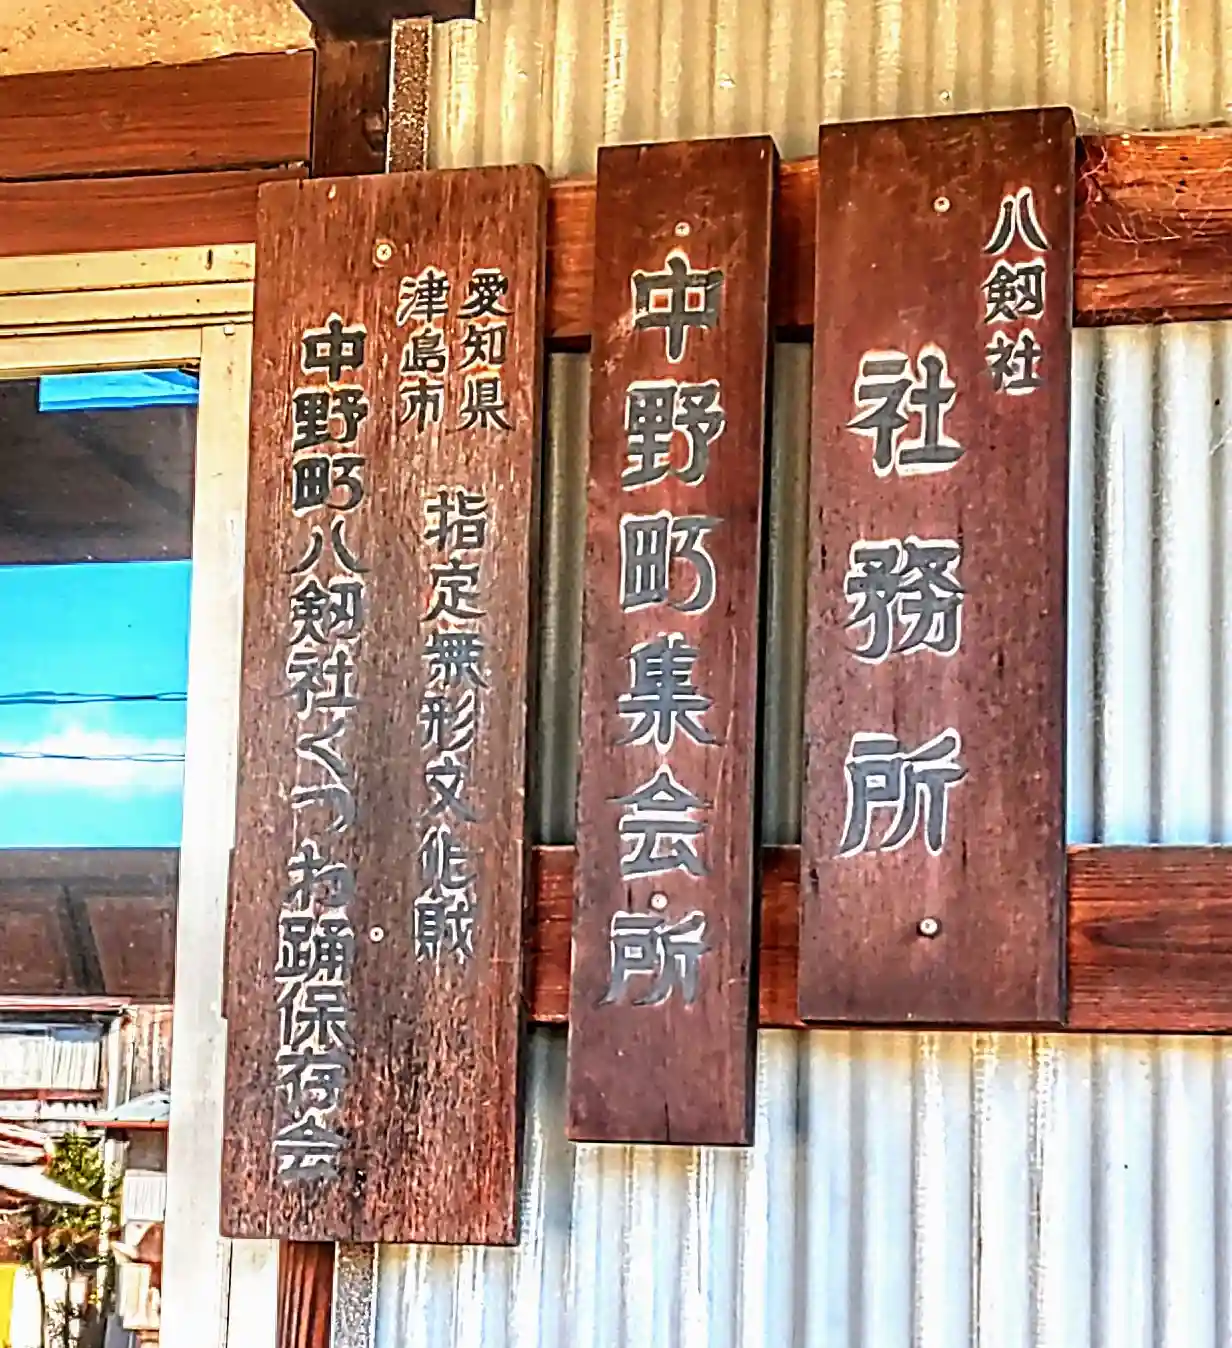 八剱社
社務所
中野町集会所
愛知県
津島市
指定無形文化財
中野町八剱社くつわ踊保存会